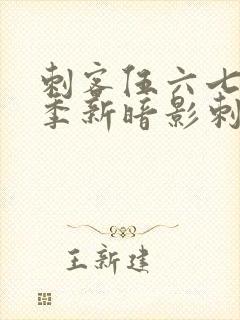 刺客伍六七
季新暗影刺
王新建